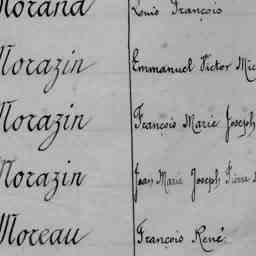 Morand Louis François
Morazin Emmanuel Victor
Morazin François Marie Joseph
Morazin Jean Marie Joseph Pierre
Moreau François René